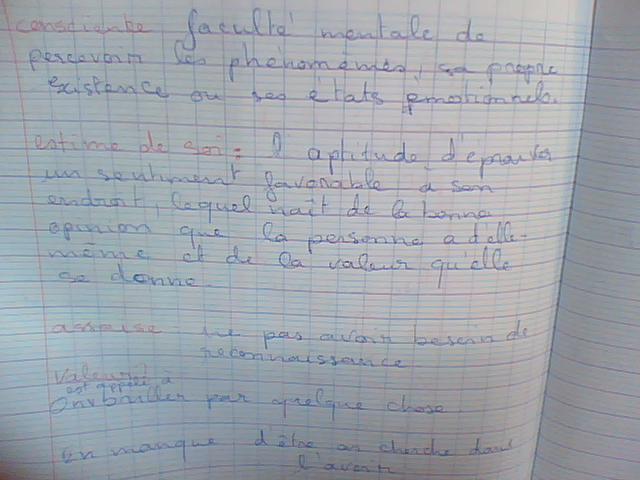 consciente faculté mentale de
percevoir les phénomènes, sa propre
existence ou ses états émotionnels.
estime de soi = l'aptitude d'éprouver
un sentiment favorable à son
endroit, lequel naît de la bonne
opinion que la personne a d'elle-
même et de la valeur qu'elle
se donne.
ne pas avoir besoin de
reconnaissance
valeur
est appelé à
briller par quelque chose
En manque d'être on cherche dans
l'avoir